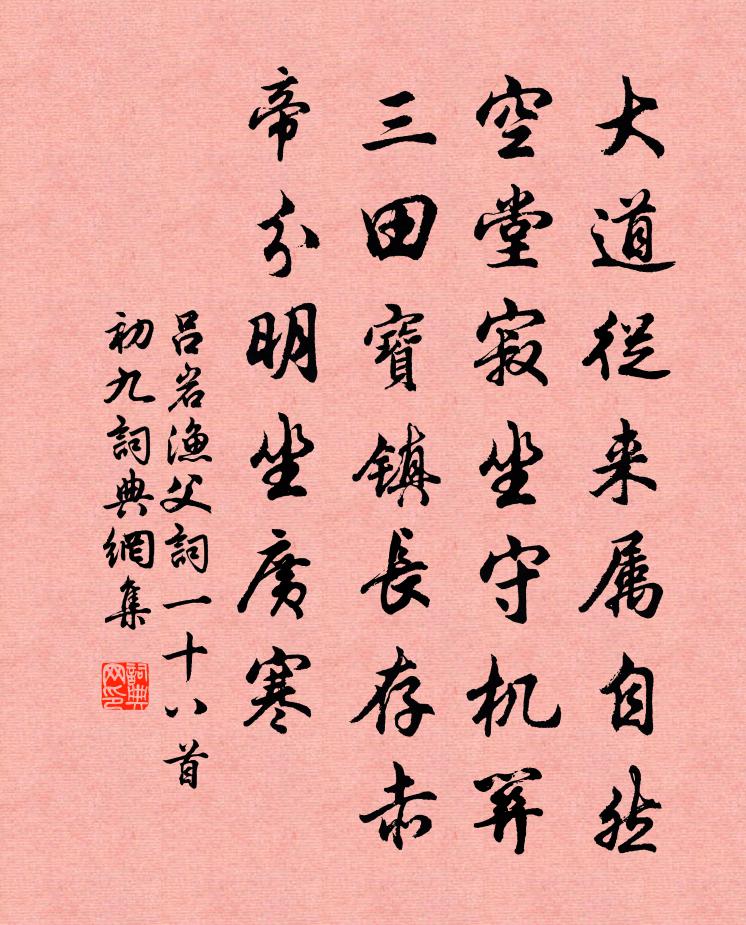 大道從来属自然
空堂寂坐守机关
三田寶镇長存赤
帝分明坐廣寒
呂岩漁父詞一十八首
初九詞典網集
詞典网印